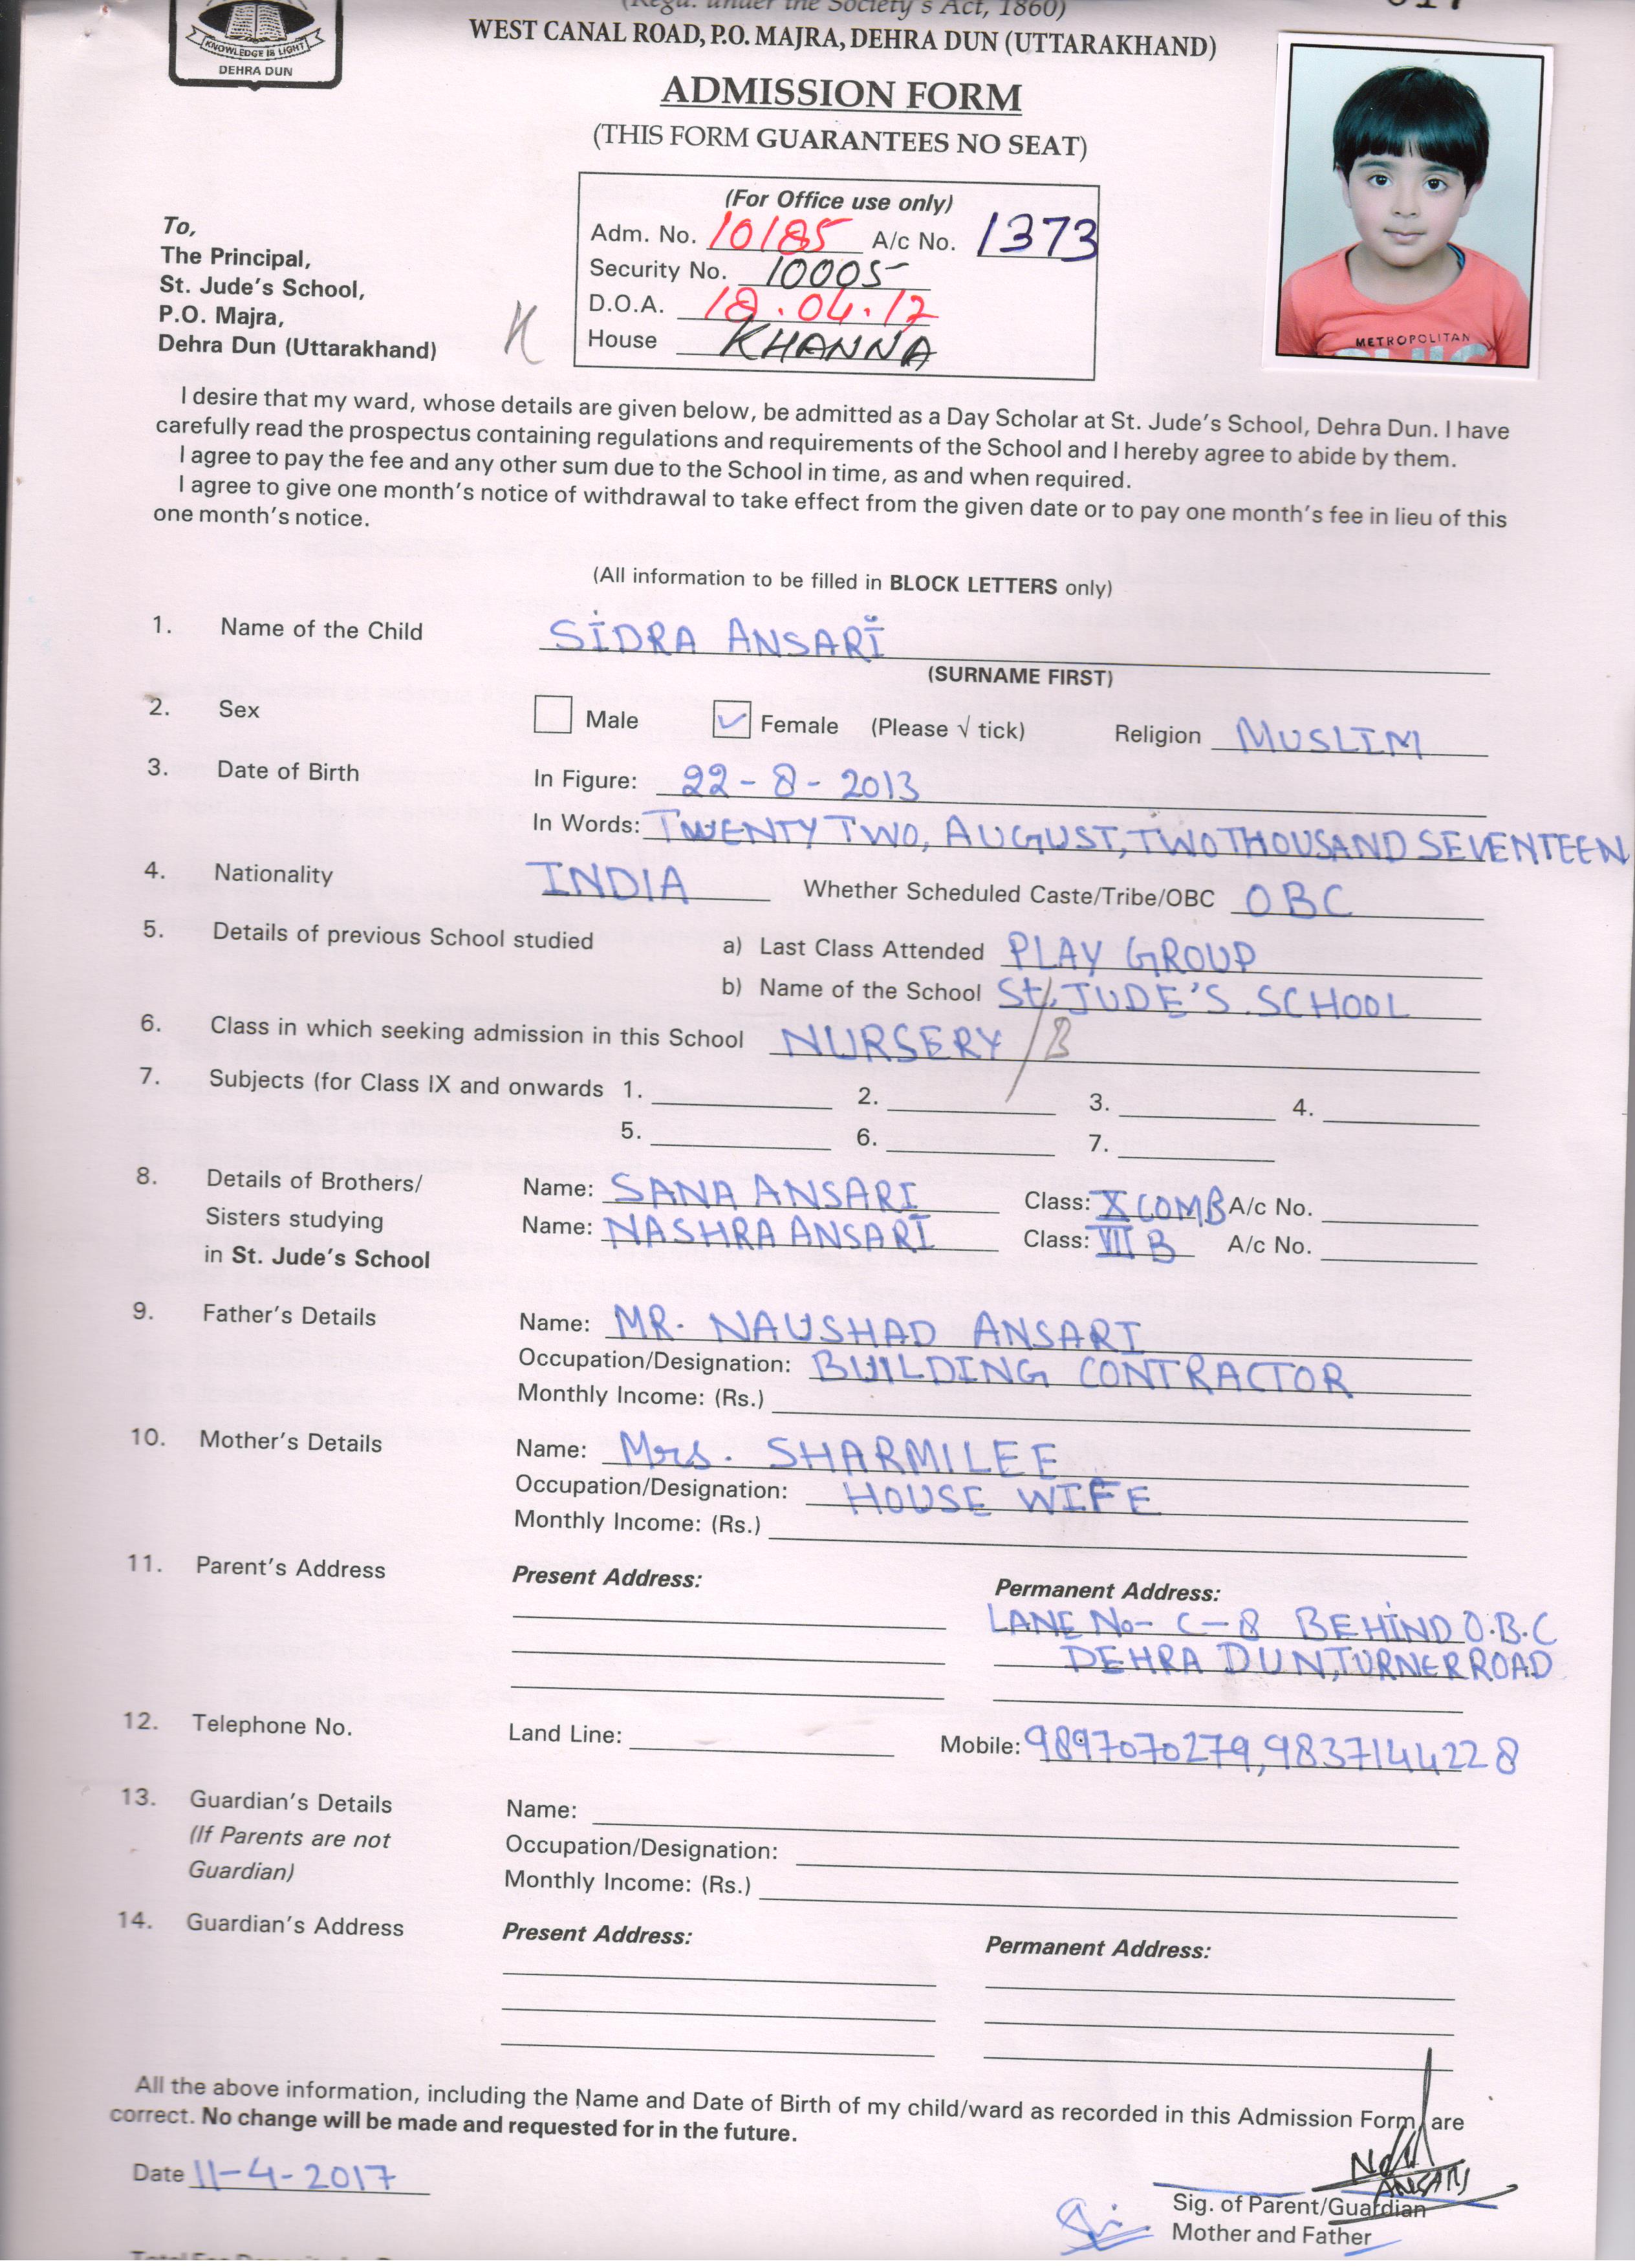 (Regd. under the Society's Act, 1860)
KNOWLEDGE IS LIGHT
DEHRA DUN
WEST CANAL ROAD, P.O. MAJRA, DEHRA DUN (UTTARAKHAND)
ADMISSION FORM
(THIS FORM GUARANTEES NO SEAT)
METROPOLITAN
(For Office use only)
Adm. No. 10185 A/c No. 1373
Security No. 10005
D.O.A. 18.04.17
House KHANNA
To,
The Principal,
St. Jude's School,
P.O. Majra,
Dehra Dun (Uttarakhand)
K
I desire that my ward, whose details are given below, be admitted as a Day Scholar at St. Jude's School, Dehra Dun. I have
carefully read the prospectus containing regulations and requirements of the School and I hereby agree to abide by them.
I agree to pay the fee and any other sum due to the School in time, as and when required.
I agree to give one month's notice of withdrawal to take effect from the given date or to pay one month's fee in lieu of this
one month's notice.
(All information to be filled in BLOCK LETTERS only)
1. Name of the Child SIDRA ANSARI
(SURNAME FIRST)
2. Sex Male Female (Please √ tick) Religion MUSLIM
3. Date of Birth In Figure: 22-8-2013
In Words: TWENTY TWO, AUGUST, TWO THOUSAND SEVENTEEN
4. Nationality INDIA Whether Scheduled Caste/Tribe/OBC OBC
5. Details of previous School studied a) Last Class Attended PLAY GROUP
b) Name of the School St. JUDE'S. SCHOOL
6. Class in which seeking admission in this School NURSERY / B
7. Subjects (for Class IX and onwards 1. 2. 3. 4.
5. 6. 7.
8. Details of Brothers/ Name: SANA ANSARI Class: X COMB A/c No.
Sisters studying Name: NASHRA ANSARI Class: VII B A/c No.
in St. Jude's School
9. Father's Details Name: MR. NAUSHAD ANSARI
Occupation/Designation: BUILDING CONTRACTOR
Monthly Income: (Rs.)
10. Mother's Details Name: Mrs. SHARMILEE
Occupation/Designation: HOUSE WIFE
Monthly Income: (Rs.)
11. Parent's Address Present Address: Permanent Address:
LANE No- C-8 BEHIND O.B.C
DEHRA DUN, TURNER ROAD
12. Telephone No. Land Line: Mobile: 9897070279, 9837144228
13. Guardian's Details Name:
(If Parents are not Occupation/Designation:
Guardian) Monthly Income: (Rs.)
14. Guardian's Address Present Address: Permanent Address:
All the above information, including the Name and Date of Birth of my child/ward as recorded in this Admission Form, are
correct. No change will be made and requested for in the future.
Date 11-4-2017
ANSARI
Sig. of Parent/Guardian
Mother and Father